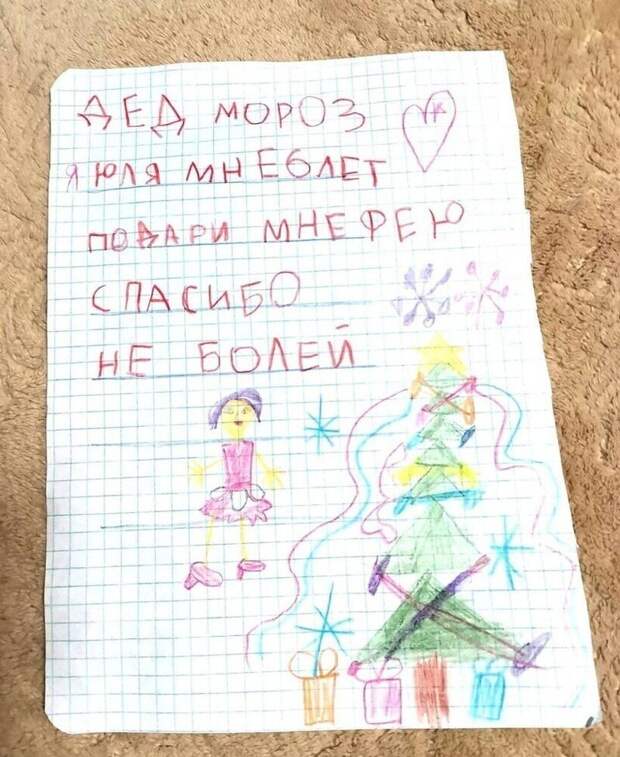 ДЕД МОРОЗ
Я ЮЛЯ МНЕ 6 ЛЕТ
ПОДАРИ МНЕ ФЕЮ
СПАСИБО
НЕ БОЛЕЙ